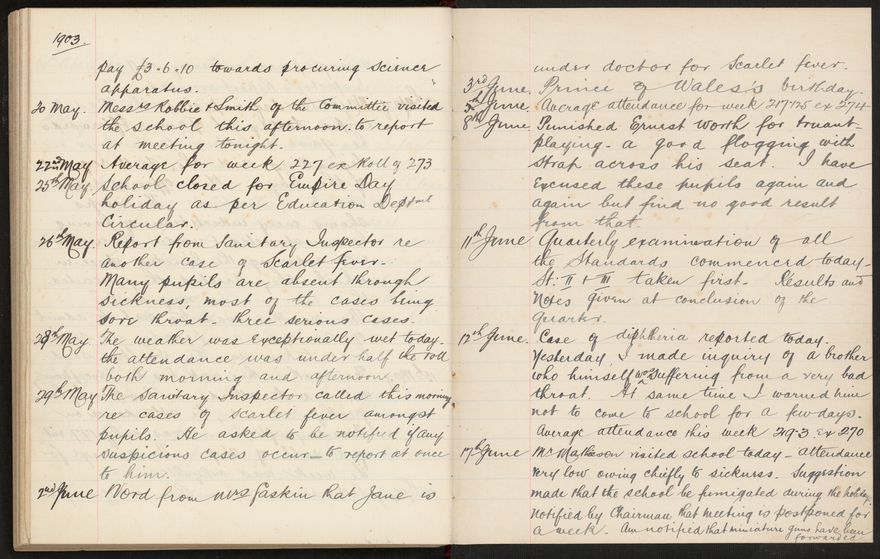 1903
pay £3-6-10 towards procuring science
apparatus.
20 May. Messrs Robbie & Smith of the Committee visited
the school this afternoon to report
at meeting tonight.
22nd May Average for week 227 ex Roll of 273
25th May School closed for Empire Day
holiday as per Education Deptmt
Circular.
26th May. Report from Sanitary Inspector re
another case of Scarlet fever.
Many pupils are absent through
sickness, most of the cases being
sore throat - three serious cases.
28th May. The weather was exceptionally wet today.
the attendance was under half the roll
both morning and afternoon
29th May The Sanitary Inspector called this morning
re cases of scarlet fever amongst
pupils. He asked to be notified if any
suspicious cases occur - to report at once
to him.
2nd June Word from Mrs Gaskin that Jane is
under doctor for Scarlet fever.
3rd June. Prince of Wales's birthday
5th June. Average attendance for week 217.25 ex 274
8th June. Punished Ernest Worth for truant-
playing - a good flogging with
strap across his seat. I have
excused these pupils again and
again but find no good result
from that.
11th June Quarterly examination of all
the Standards commenced today -
St: II & III taken first. Results and
Notes given at conclusion of the
Quarter.
12th June. Case of diphtheria reported today.
Yesterday, I made inquiry of a brother
who himself was suffering from a very bad
throat. At same time I warned him
not to come to school for a few days.
Average attendance this week ex 270
17th June Mr Matheson visited school today - attendance
very low owing chiefly to sickness. Suggestion
made that the school be fumigated during the holiday.
Notified by Chairman that meeting is postponed for
a week. Am notified that miniature guns have been
forwarded